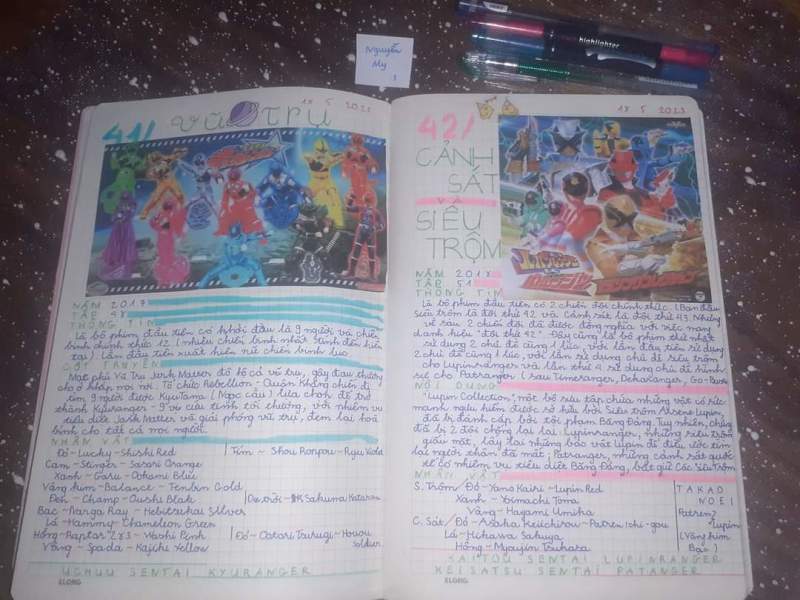 Nguyễn
My
highlighter
18 5 2023
41/ VŨ TRỤ
NĂM 2017
TẬP 48
THÔNG TIN
Là bộ phim đầu tiên có khởi đầu là 9 người và chiến
binh chính thức 12 (nhiều chiến binh nhất tính đến hiện
tại). Lần đầu tiên xuất hiện nữ chiến binh lục.
CỐT TRUYỆN
Mạc phủ Vũ Trụ Jark Matter đô hộ cả vũ trụ, gây đau thương
cho ở khắp mọi nơi. Tổ chức Rebellion - Quân Kháng chiến đi
tìm 9 người được KyuTama (Ngọc cầu) lựa chọn để trở
thành Kyuranger - 9 vị cứu tinh tối thượng, với nhiệm vụ
tiêu diệt Jark Matter và giải phóng vũ trụ, đem lại hoà
bình cho tất cả mọi người.
NHÂN VẬT
Đỏ - Lucky - Shishi Red
Tím ~ Shou Ronpou - Ryu Viole
Cam - Stinger - Sasori Orange
Xanh ~ Garu - Ookami Blue
Vàng kim - Balance ~ Tenbin Gold
Đen ~ Champ - Oushi Black
Sakuma Kotarou
Bạc ~ Naaga Ray - Hebitsukai Silver
Lá ~ Hammy - Chameleon Green
Hồng - Raptor 283 ~ Washi Pink
Đỏ - Ootori Tsurugi ~ Houou
Soldier
Vàng ~ Spada - Kajiki Yellow
UCHUU SENTAI KYURANGER
KLONG
18 5 2023
42/
CẢNH
SÁT
VÀ
SIÊU
TRỘM
NĂM 2018
TẬP 51
THÔNG TIN
Là bộ phim đầu tiên có 2 chiến đội chính thức (Ban đầu
Siêu trộm là đội thứ 42 và Cảnh sát là đội thứ 43. Nhưng
về sau 2 chiến đội đã được đồng nghĩa với việc mang
danh hiệu "đội thứ 42". Đây cũng là bộ phim thứ nhất
sử dụng 2 chủ đề cùng 1 lúc, với lần đầu tiên sử dụng
2 chủ đề cùng 1 lúc, với lần sử dụng chủ đề siêu trộm
cho Lupinranger và lần thứ 4 sử dụng chủ đề hình
sự cho Patranger (sau Timeranger, Dekaranger, Go-Busters
NỘI DUNG
"Lupin Collection", một bộ sưu tập chứa những vật có sức
mạnh nguy hiểm được sở hữu bởi Siêu trộm Arsene Lupin,
đã bị đánh cắp bởi tội phạm Băng Đảng. Tuy nhiên, chúng
đã bị 2 đội chống lại là: Lupinranger, những siêu trộm
giấu mặt, lấy lại những báu vật Lupin để điều ước tìm
lại người thân đã mất; Patranger, những cảnh sát quốc
tế có nhiệm vụ tiêu diệt Băng Đảng, bắt giữ các Siêu Trộm
NHÂN VẬT
S. Trộm / Đỏ - Yano Kairi - Lupin Red
Xanh - Yoimachi Toma
Vàng - Hayami Umika
C. Sát / Đỏ - Asaka Keiichirou - Patren Ichi-gou
Lá - Hikawa Sakuya
Hồng - Myoujin Tsukasa
TAKAO
NOEL
Patren?
Lupin
(Vàng kim
Bạc)
KAITOU SENTAI LUPINRANGER
KEISATSU SENTAI PATANGER
KLONG